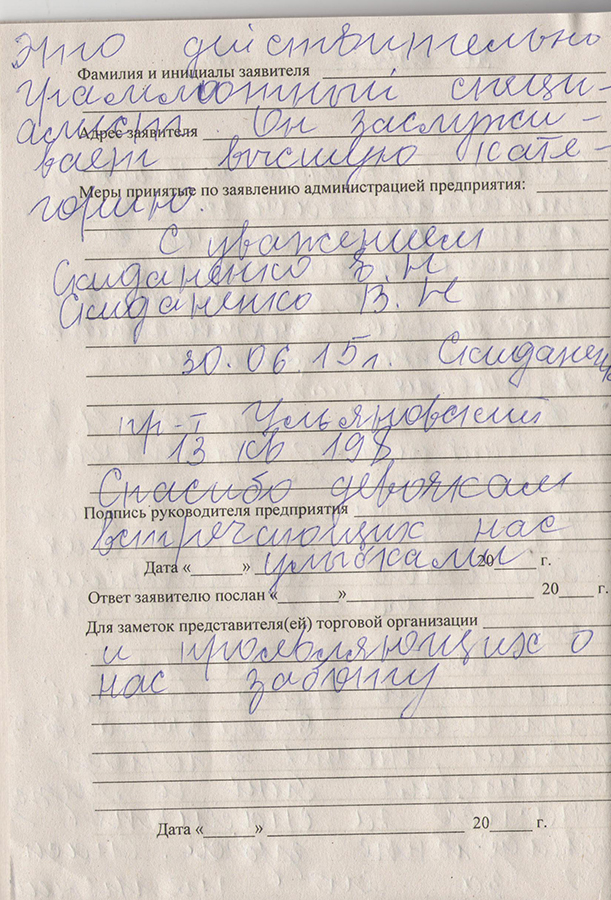 Это действительно
Фамилия и инициалы заявителя
грамотный специ-
алист. Он заслужи-
Адрес заявителя
вает высшую кате-
Меры принятые по заявлению администрацией предприятия:
горию.
С уважением
Скиданенко З. Н
Скиданенко В. Н
30.06 15г. Скиданен
пр-т Ульяновский
13 кв 198
Спасибо девочкам
Подпись руководителя предприятия
встречающих нас
улыбками
Дата «_____» 20_____ г.
Ответ заявителю послан «______» 20____ г.
Для заметок представителя(ей) торговой организации
и проявляющих о
нас заботу
Дата «______» 20_____ г.